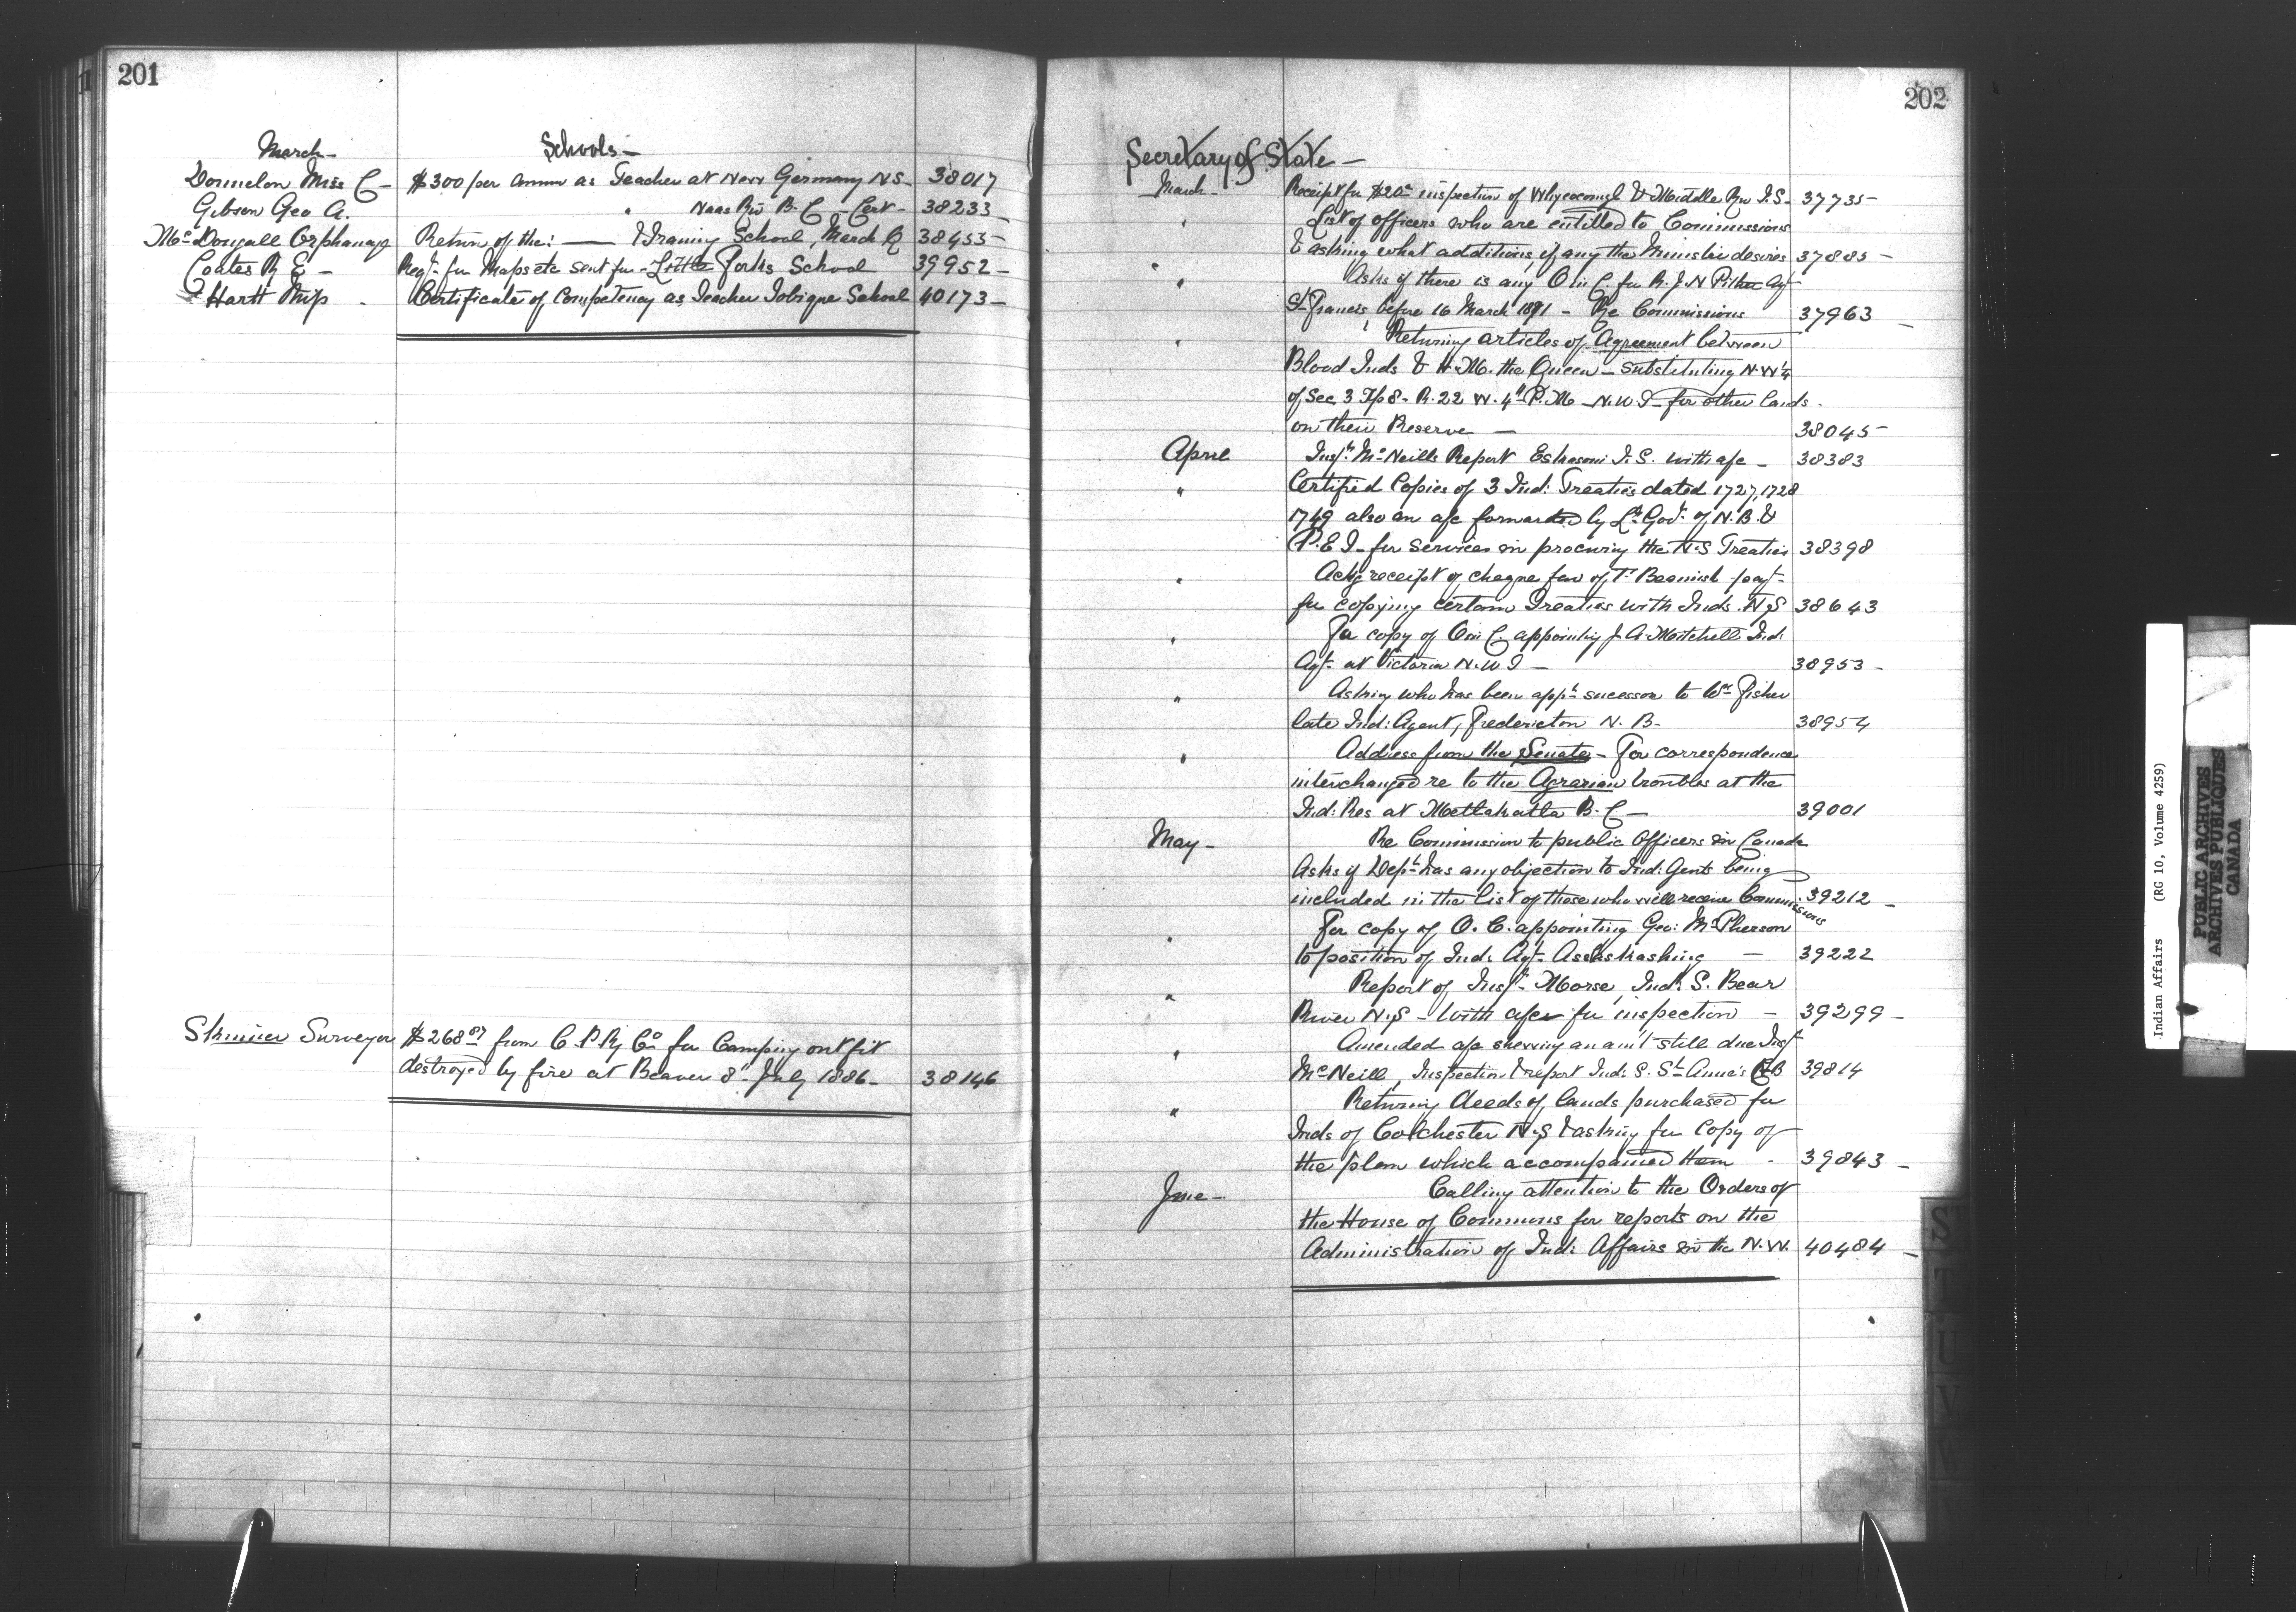 201
March - Schools -
Donnelon Miss C - $300 per annm as Teacher at New Germany N.S - 38017
Gibson Geo A. " Naas Riv B.C - Cert - 38233 -
McDougall Orphanage Return of the: — & Training School, March Q 38455 -
Coates R E - Reqn. for Maps etc sent for - Little Forks School 39952 -
Hartt Miss - Certificate of Competency as Teacher Tobique School 40173 -
Skinner Surveyor $268 from C.P.Ry Co for Camping outfit
destroyed by fire at Beaver 8" July 1886 - 38146
202
Secretary of State -
March - Receipt for $20 inspection of Whycocomagh & Middle Riv I.S - 37735 -
" List of officers who are entitled to Commissions
& asking what additions, if any the Minister desires 37885 -
" Asks if there is any O in C for Agt
St Francis before 16 March 1891 - Re Commissions 37963 -
" Returning articles of Agreement between
Blood Inds & H.M. the Queen - substituting N.W 1/4
of Sec 3 Tp 8 - R. 22 W. 4th P.M - N.W.T - for other lands
on their Reserve - 38045 -
April Inspr. McNeills Report Eskasoni I.S. with a/c - 38383
" Certified Copies of 3 Ind: Treaties dated 1727, 1728
1749 also an a/c forwarded by Lt. Govr. of N.B. &
P.E.I - for services in procuring the N.S Treaties 38398
" Ackg receipt of cheque fav of Beamish payt.
for copying certain Treaties with Inds. N.S 38643
" For copy of O in C. appointing J. A. Mitchell Ind:
Agt. at Victoria N.W.T - 38953 -
" Asking who has been appt. sucessor to Wm Fisher
late Ind: Agent, Fredericton N.B - 38954
" Address from the Senate - For correspondence
interchanged re to the Agrarian troubles at the
Ind: Res at Metlakatla B.C - 39001
May - Re Commission to public Officers in Canada
Asks if Dept. has any objection to Ind: Agents being
included in the list of those who will receive Commissions 39212 -
" For copy of O.C. appointing Geo: McPherson
to position of Ind: Agt. Assabaskashing - 39222
" Report of Inspr. Morse, Ind: S. Bear
River N.S - With a/cs for inspection - 39299 -
" Amended a/c shewing an amt. still due Inspr
McNeill, Inspection & report Ind: S. St Anne's C.B 39814
" Returning deeds of lands purchased for
Inds of Colchester N.S & asking for Copy of
the plan which accompanied them - 39843 -
June - Calling attention to the Orders of
the House of Commons for reports on the
Administration of Ind: Affairs in the N.W. 40484 -
Indian Affairs (RG 10, Volume 4259)
PUBLIC ARCHIVES
ARCHIVES PUBLIQUES
CANADA
S
T
U
V
W